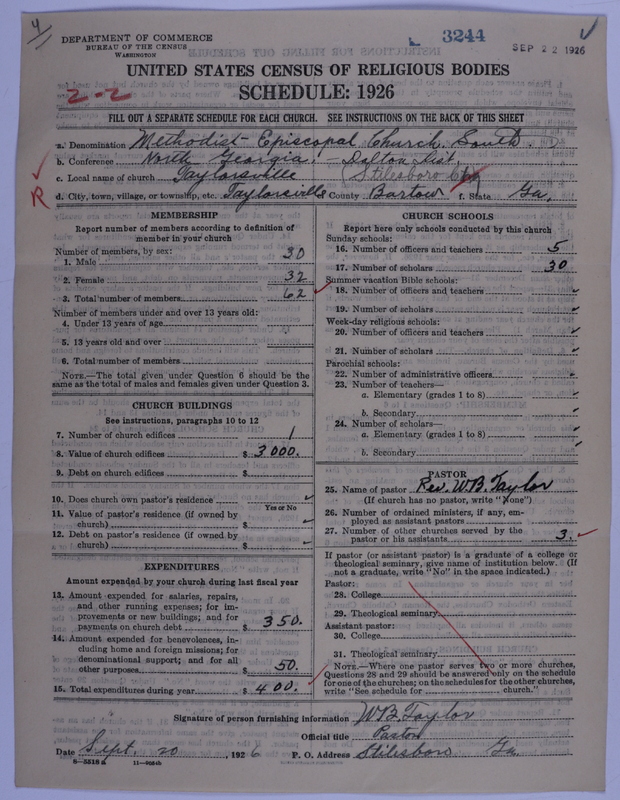 4
DEPARTMENT OF COMMERCE
BUREAU OF THE CENSUS
WASHINGTON
3244
SEP 22 1926
UNITED STATES CENSUS OF RELIGIOUS BODIES
2-2
SCHEDULE: 1926
FILL OUT A SEPARATE SCHEDULE FOR EACH CHURCH. SEE INSTRUCTIONS ON THE BACK OF THIS SHEET
a. Denomination Methodist Episcopal Church, South
b. Conference North Georgia - Dalton Dist.
c. Local name of church Taylorsville Stilesboro
R
d. City, town, village, or township, etc. Taylorsville County Bartow f. State Ga.
MEMBERSHIP
Report number of members according to definition of
member in your church
Number of members, by sex:
1. Male 30
2. Female 32
3. Total number of members 62
Number of members under and over 13 years old:
4. Under 13 years of age
5. 13 years old and over
6. Total number of members
NOTE.—The total given under Question 6 should be the
same as the total of males and females given under Question 3.
CHURCH BUILDINGS
See instructions, paragraphs 10 to 12
7. Number of church edifices 1
8. Value of church edifices $ 3000.
9. Debt on church edifices $
10. Does church own pastor's residence
Yes or No
11. Value of pastor's residence (if owned by
church) $
12. Debt on pastor's residence (if owned by
church) $
EXPENDITURES
Amount expended by your church during last fiscal year
13. Amount expended for salaries, repairs,
and other running expenses; for im-
provements or new buildings; and for
payments on church debt $ 350.
14. Amount expended for benevolences, in-
cluding home and foreign missions; for
denominational support; and for all
other purposes $ 50.
15. Total expenditures during year $ 400.
CHURCH SCHOOLS
Report here only schools conducted by this church
Sunday schools:
16. Number of officers and teachers 5
17. Number of scholars 30
Summer vacation Bible schools:
18. Number of officers and teachers
19. Number of scholars
Week-day religious schools:
20. Number of officers and teachers
21. Number of scholars
Parochial schools:
22. Number of administrative officers
23. Number of teachers—
a. Elementary (grades 1 to 8)
b. Secondary
24. Number of scholars—
a. Elementary (grades 1 to 8)
b. Secondary
PASTOR
25. Name of pastor Rev. W.B. Taylor
(If church has no pastor, write "None")
26. Number of ordained ministers, if any, em-
ployed as assistant pastors
27. Number of other churches served by the
pastor or his assistants 3.
If pastor (or assistant pastor) is a graduate of a college or
theological seminary, give name of institution below. (If
not a graduate, write "No" in the space indicated.)
Pastor:
28. College
29. Theological seminary
Assistant pastor:
30. College
31. Theological seminary
NOTE.—Where one pastor serves two or more churches,
Questions 28 and 29 should be answered only on the schedule
for one of the churches; on the schedules for the other churches,
write "See schedule for church."
Signature of person furnishing information W.B. Taylor
Official title Pastor
Date Sept. 20, 1926 P. O. Address Stilesboro Ga.
8—5518 a